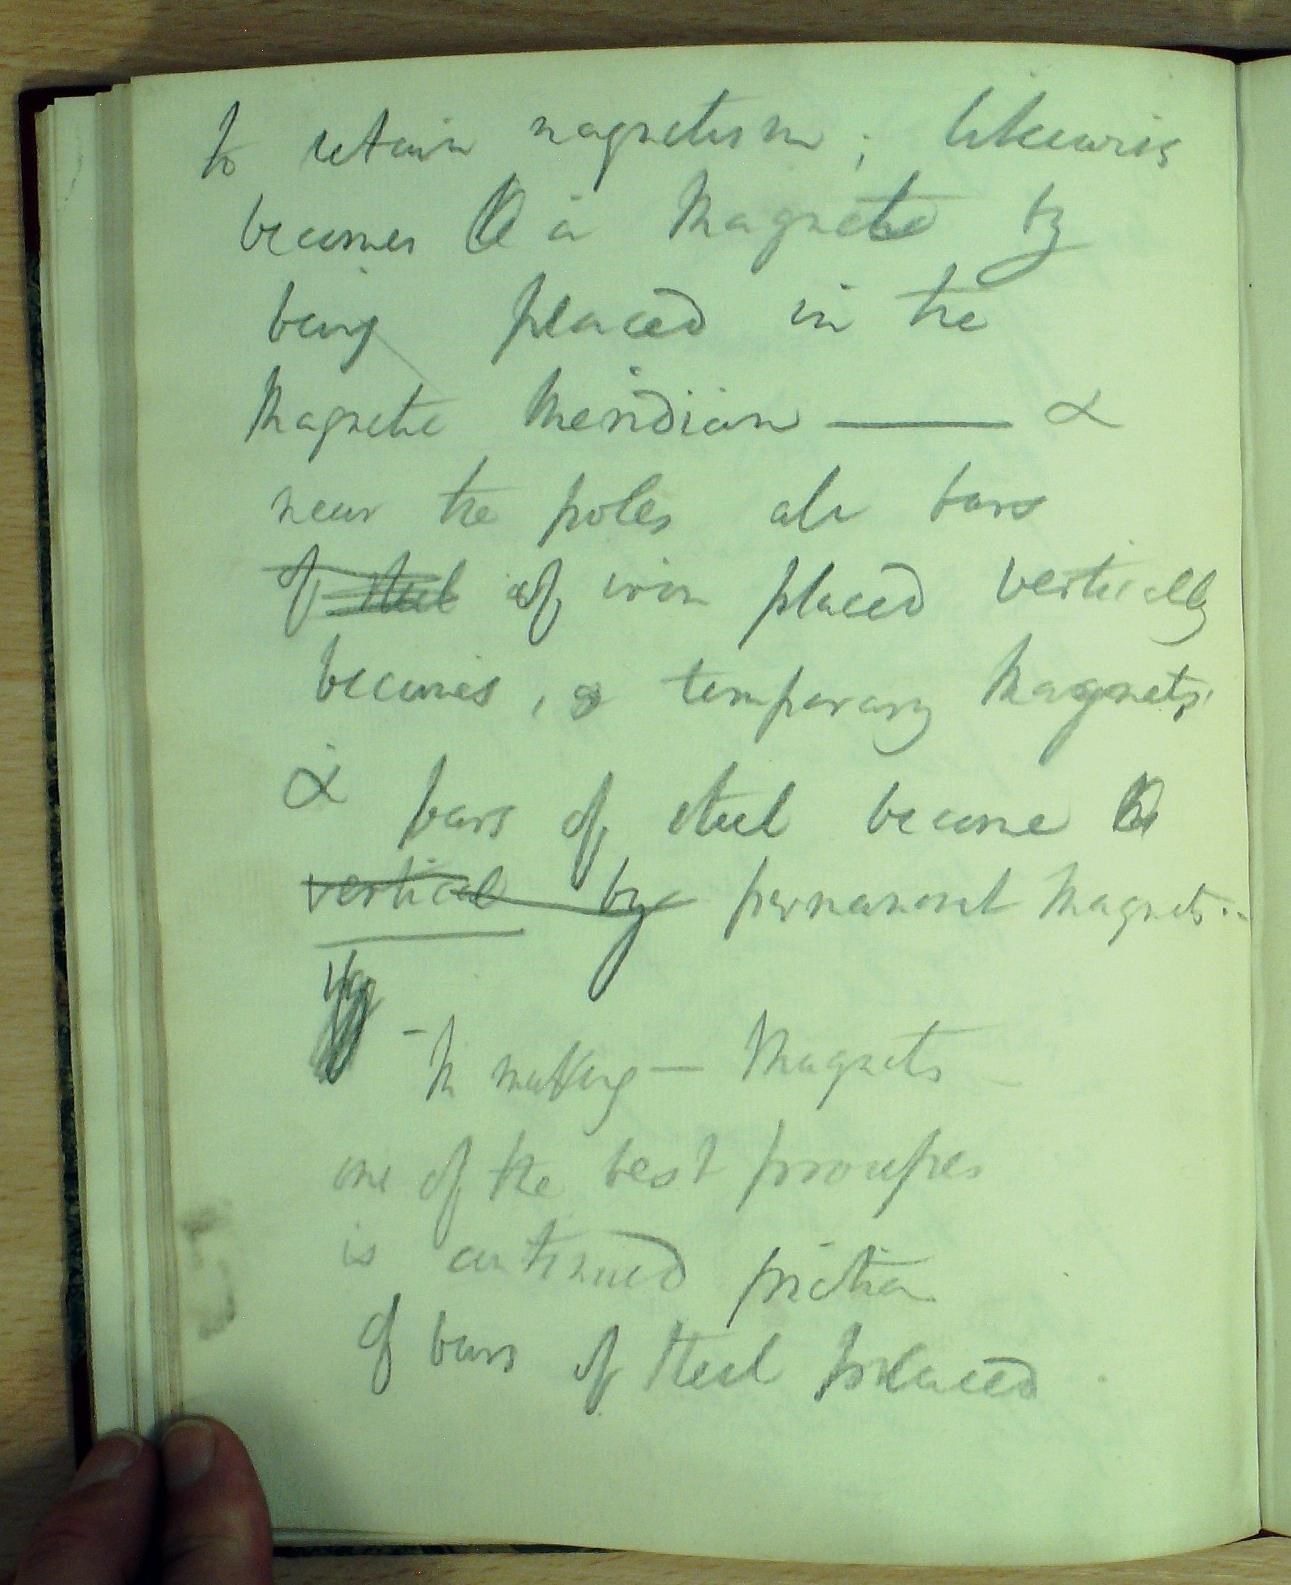 to retain magnetism; likewise
becomes a Magnete by
being placed in the
Magnetic Meridian —— &
near the poles all bars
of steel of iron placed vertically
becomes, a temporary Magnets,
& bars of steel become
vertical by permanent Magnets.
- In making — Magnets
one of the best processes
is continued friction
of bars of steel placed